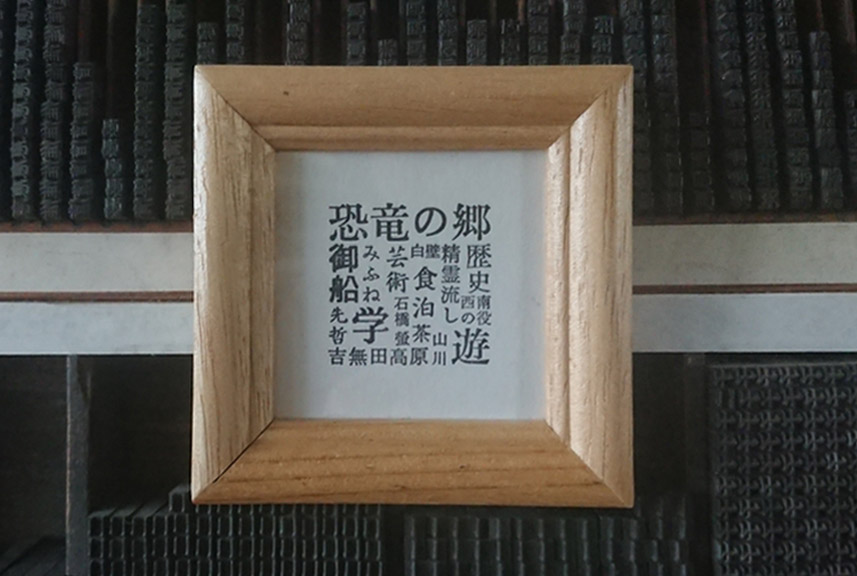 恐竜の郷
御船
みふね
芸術
白壁
精霊流し
歴史
食
泊
西南の役
石橋
学
先哲
茶
蛍
山川
遊
吉無田高原